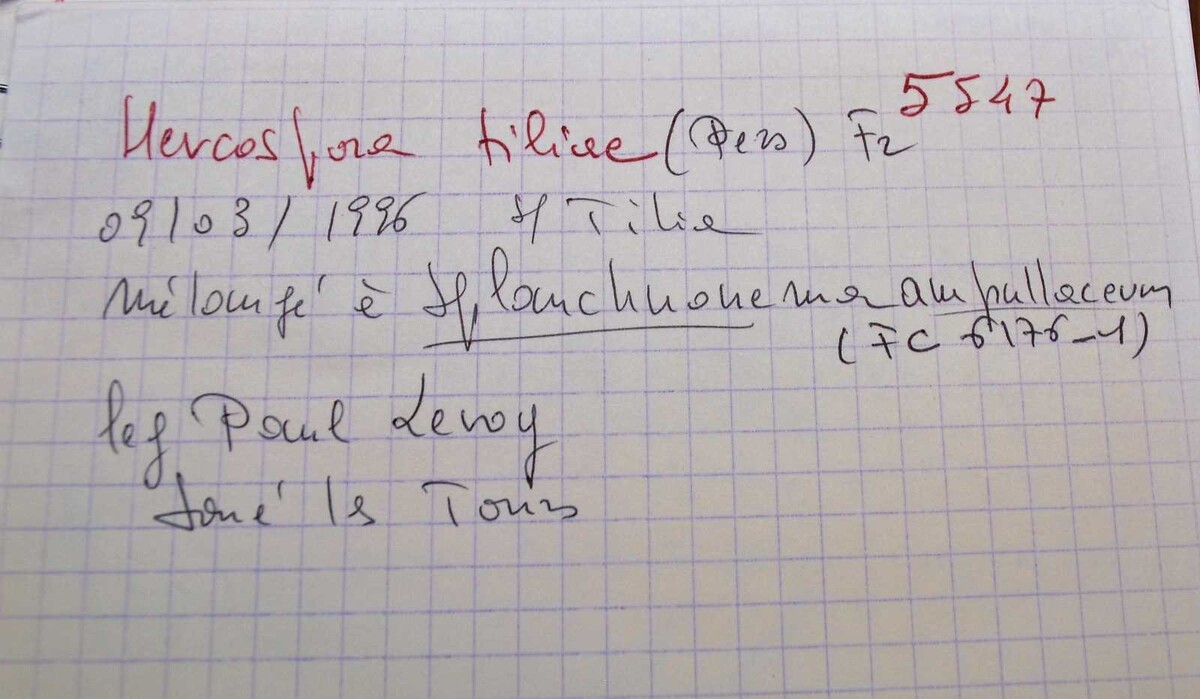 5547
Hercospora tiliae (Pers) Fr
09/03/1996 s/ Tilia
mélangé à Splanchnonema ampullaceum
(FC 6176-1)
leg Paul Leroy
Joué ls Tours